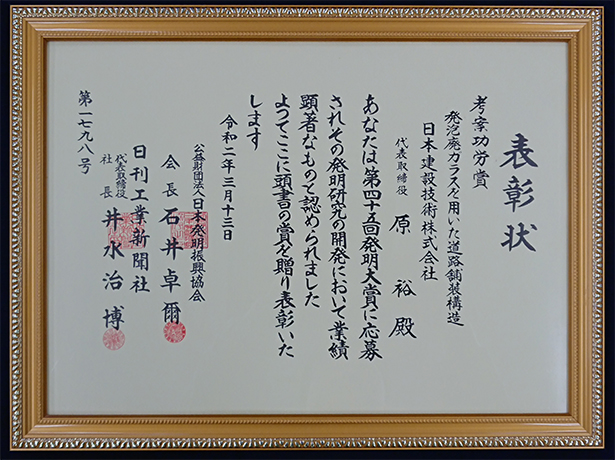 表彰状
考案功労賞
発泡廃ガラスを用いた道路舗装構造
日本建設技術株式会社
代表取締役 原 裕 殿
あなたは第四十五回発明大賞に応募
されその発明研究の開発において業績
顕著なものと認められました
よつてここに頭書の賞を贈り表彰いた
します
令和二年三月十三日
公益財団法人日本発明振興協会
会長 石井卓爾
日刊工業新聞社
代表取締役
社長 井水治博
第一七九八号